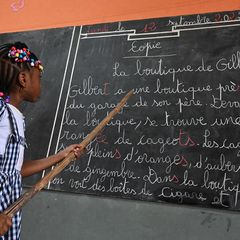 le 12 septembre 202
Copie
La boutique de Gil
Gilbert a une boutique près
du garage de son père. Devant
la boutique, se trouve une
de cageots. Les cag
pleins d'oranges, d'auber
de gingembre. Dans la boutiq
on voit des boîtes de Cigare et